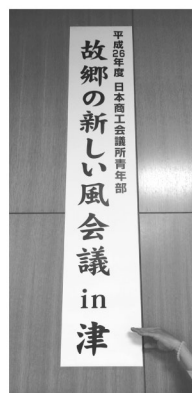 平成26年度 日本商工会議所青年部
故郷の新しい風会議 in 津